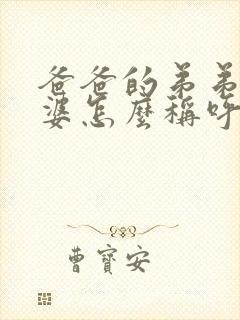 爸爸的弟弟
婆怎麼稱呼
曹寶安